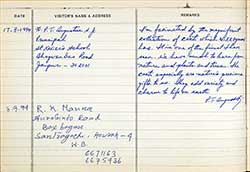 DATE
VISITOR'S NAME & ADDRESS
REMARKS
17.8.1994
Fr. P.T. Augustine S.J.
Principal
St. Xavier's School
Bhagwan Das Road
Jaipur - 302001
I'm fascinated by the magnificent
collection of cacti which
has. It is one of the finest
we have
nature and plants and trees. The
cacti especially are nature's precious
gifts here. They add variety and
charm to life on earth.
P.T. Augustine
3.9.94
R. K. Manna
Aurobindo Road
Box bagan
Santragachi, Howrah-4
W.B.
6671163
6675936